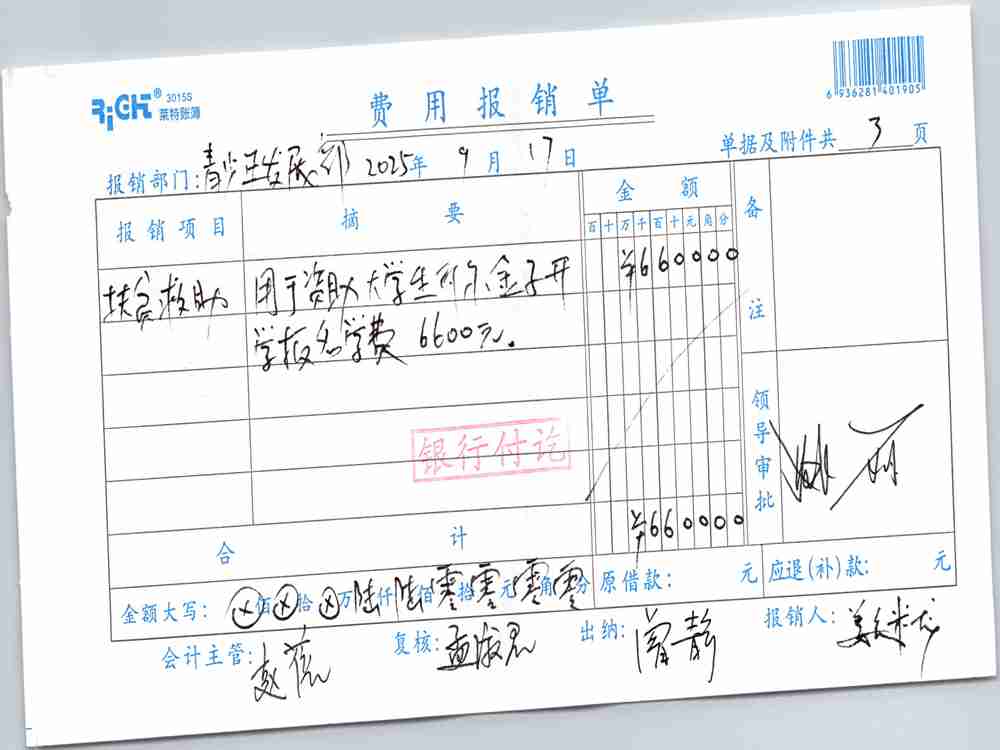 RiCHT® 3015S
莱特账簿
6 936281 401905
费用报销单
报销部门:青少年发展部 2025年 9月 17日 单据及附件共 3 页
报销项目 摘要 金额 备注
百十万千百十元角分
扶贫救助 用于资助大学生 金子开 ¥660000
学报名学费 6600元。
银行付讫
领导审批
合计 ¥660000
金额大写: ⊗佰⊗拾⊗万陆仟陆佰零拾零元零角零分 原借款: 元 应退(补)款: 元
会计主管: 赵 复核: 孟 出纳: 静 报销人: 姜